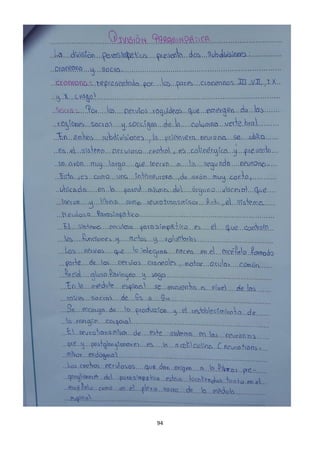 DIVISIÓN PARASIMPÁTICA
La división parasimpática presenta dos subdivisiones:
craneana y sacra.
craneana: representada por los pares craneanos III VII, IX
y X (vago)
sacra: Por los nervios raquídeos que emergen de las
regiones sacras y coccígea de la columna vertebral
En ambas subdivisiones, la primera neurona se ubica
en el sistema nervioso central, es colinérgica y presenta
un axón muy largo que inerva a la segunda neurona
Esta es como una interneurona, de axón muy corto,
ubicada en la pared misma del órgano visceral que
inerva y libera como neurotransmisor Ach, el sistema
nervioso Parasimpático
El sistema nervioso parasimpático es el que controla
las funciones y actos voluntarios
Los nervios que lo integran nacen en el encéfalo formando
parte de los nervios craneales, motor ocular común
facial gloso faríngeo y vago
En la médula espinal se encuentra a nivel de las
raíces sacras de S2 a S4
Se encarga de la producción y el restablecimiento de
la energía corporal
El neurotransmisor de este sistema en las neuronas
pre y postganglionares es la acetilcolina (neurotrans-
misor endógeno)
Los centros nerviosos que dan origen a las fibras pre-
ganglionares del parasimpático están localizados tanto en el
encéfalo como en el plexo sacro de la médula
espinal
94